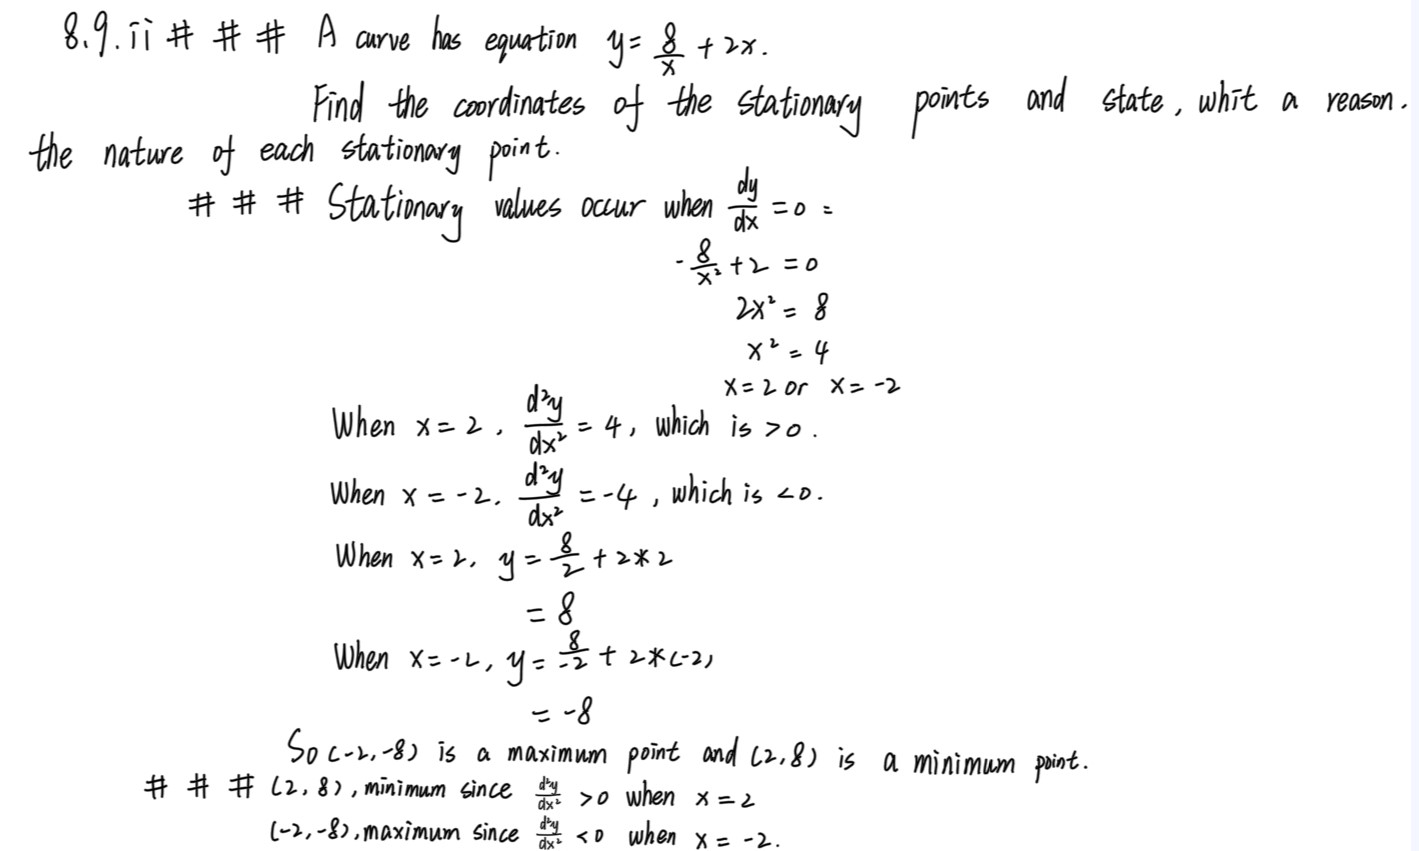 8.9.ii # # # A curve has equation y = 8/x + 2x.
Find the coordinates of the stationary points and state, whit a reason.
the nature of each stationary point.
# # # Stationary values occur when dy/dx = 0 =
-8/x² + 2 = 0
2x² = 8
x² = 4
x = 2 or x = -2
When x = 2, d²y/dx² = 4, which is > 0.
When x = -2, d²y/dx² = -4, which is < 0.
When x = 2, y = 8/2 + 2*2
= 8
When x = -2, y = 8/-2 + 2*(-2)
= -8
So (-2, -8) is a maximum point and (2, 8) is a minimum point.
# # # (2, 8), minimum since d²y/dx² > 0 when x = 2
(-2, -8), maximum since d²y/dx² < 0 when x = -2.